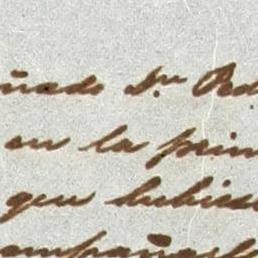 ñado Sr. Ped
en la prim
que hubies
ompañas